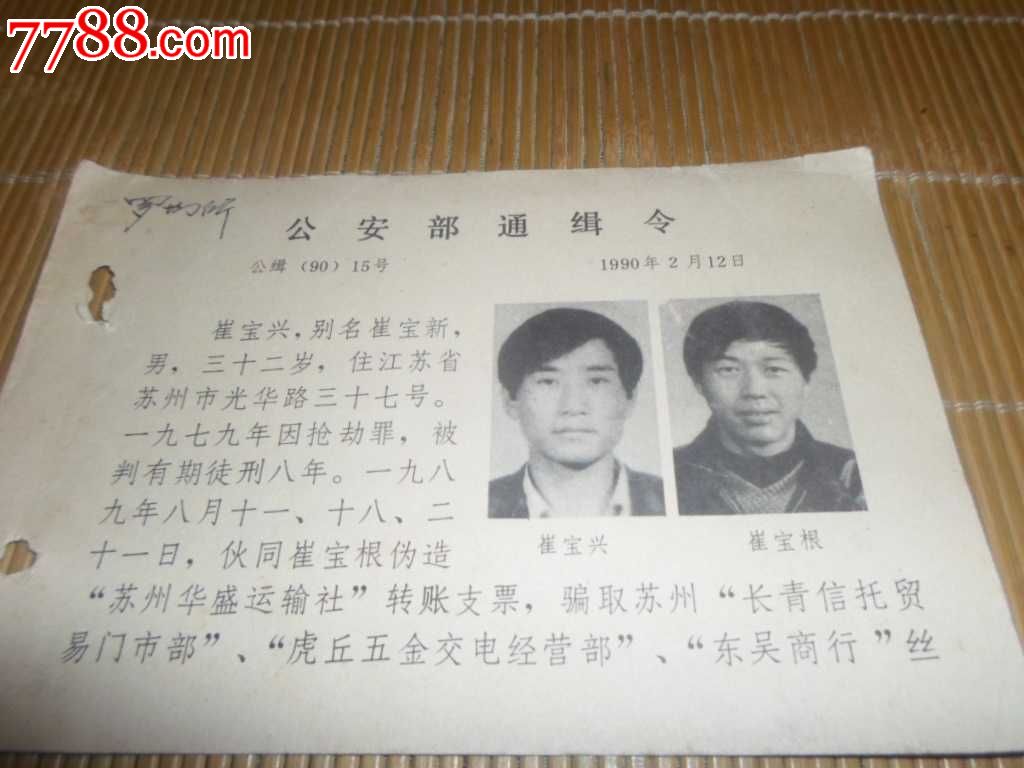 7788.com
公安部通缉令
公缉（90）15号
1990年2月12日
崔宝兴，别名崔宝新，
男，三十二岁，住江苏省
苏州市光华路三十七号。
一九七九年因抢劫罪，被
判有期徒刑八年。一九八
九年八月十一、十八、二
十一日，伙同崔宝根伪造
“苏州华盛运输社”转账支票，骗取苏州“长青信托贸
易门市部”、“虎丘五金交电经营部”、“东吴商行”丝
崔宝兴
崔宝根